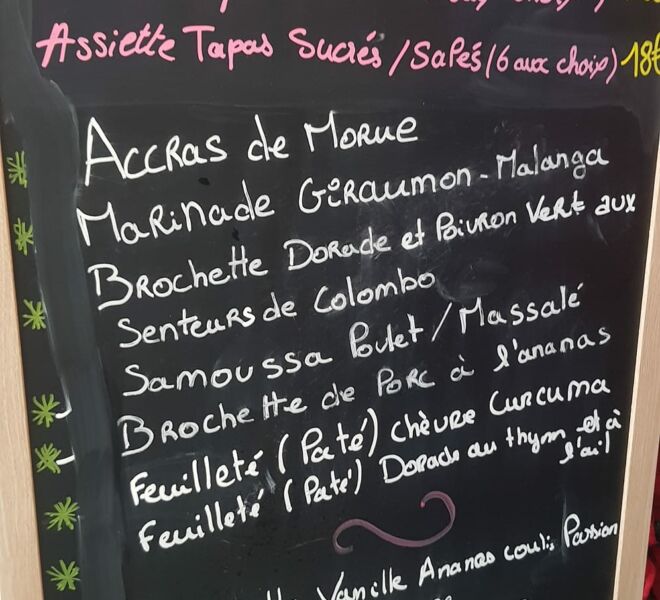 Assiette Tapas Sucrés / Salés (6 aux choix) 18€
Accras de Morue
Marinade Giraumon - Malanga
Brochette Dorade et Poivron Vert aux
Senteurs de Colombo
Samoussa Poulet / Massalé
Brochette de Porc à l'ananas
Feuilleté (Paté) chèvre Curcuma
Feuilleté (Paté) Dorade au thym et à
l'ail
Vanille Ananas coulis Passion